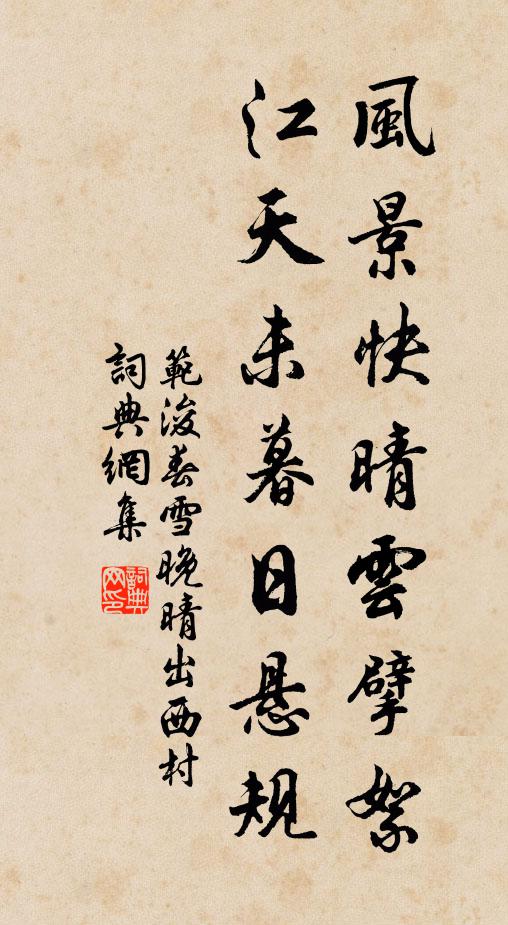 風景快晴雲擘絮
江天未暮日悬規
範浚春雪晚晴出西村
詞典網集
詞典網印